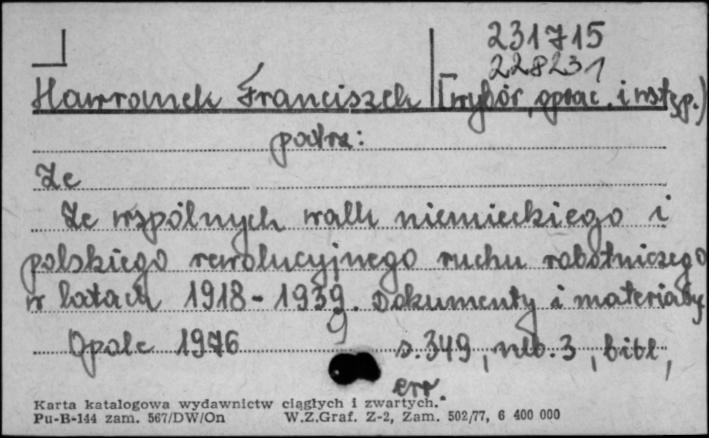 231715
228231
Hawranek Franciszek (wybór, oprac. i wstęp.)
patrz:
Ze
Ze wspólnych walk niemieckiego i
polskiego rewolucyjnego ruchu robotniczego
w latach 1918-1939. Dokumenty i materiały
9
Opole 1976 s. 349, nlb. 3, bibl,
err.
Karta katalogowa wydawnictw ciągłych i zwartych.
Pu-B-144 zam. 567/DW/On W.Z.Graf. Z-2, Zam. 502/77, 6 400 000